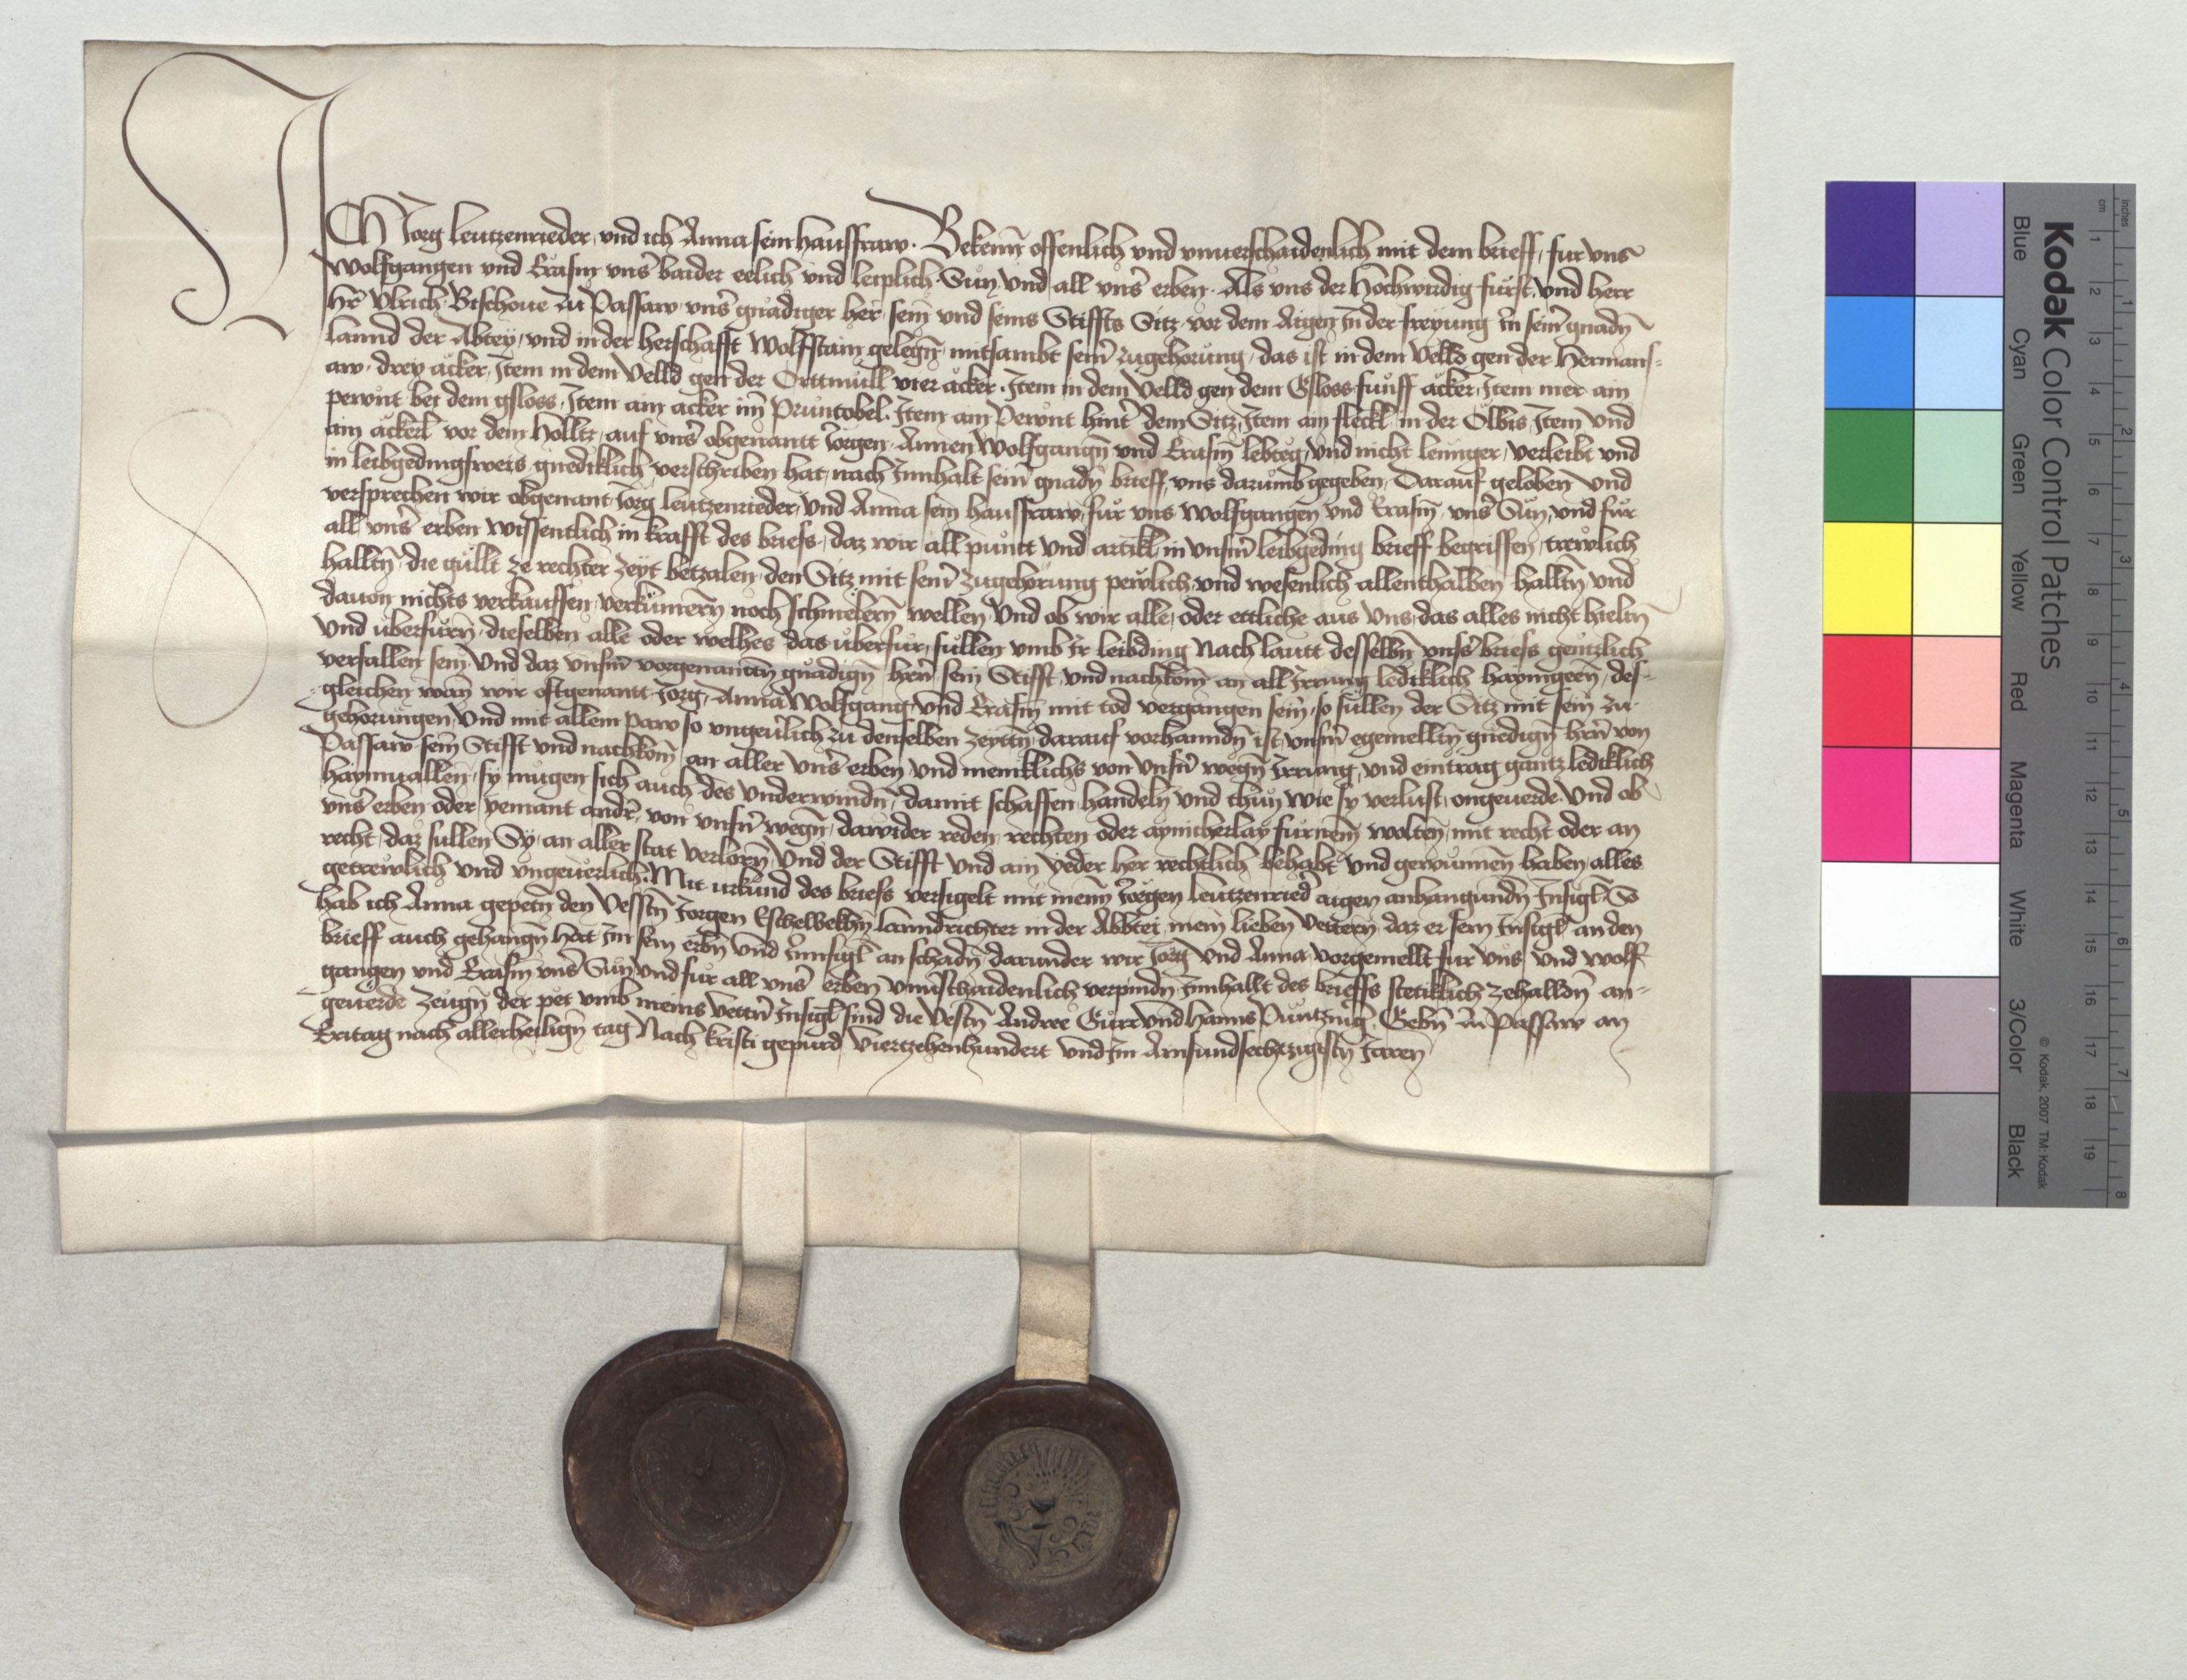 ICH Jorg leutzenrieder, vnd ich Anna sein hausfraw. Bekenn offenlich vnd vnuerschaidenlich mit dem brieff, fur vns
Wolfgangen vnd Erasm vns baider eelich vnd leiplich Sün, vnd all vns erben. Als vns der Hochwirdig fürst, vnd herr
Hr Vlrich Bischoue zu Passaw vns gnadiger her, sein vnd seins Stiffts Sitz vor dem Aigen in der freyung in seinr gnadn
lannd der Abtey, vnd in der herschafft Wolfstain gelegn, mitsambt seinr zugehorung, das ist in dem Velld gen der Hermans-
aw, drey äcker, Item in dem Velld gen der Ortmüll vier äcker. Item in dem Velld gen dem Gsloss fünff äcker, Item mer ain
pewnt bei dem gsloss, Item ain acker im Prüntobel. Item ain Pewnt hint dem Sitz, Item ain fleckl in der Ölbis, Item vnd
ain äckerl vor dem Holltz, auf vns obgenantt Jorgen Annen Wolfgangn vnd Erasm lebteg, vnd nicht lennger, verleibt vnd
in leibgedingsweis gnediklich verschriben hat, nach Innhalt seinr gnadn brieff, vns darumb gegeben, Darauf geloben vnd
versprechen wir obgenant Jorg leutzenrieder, vnd Anna sein hausfraw, für vns Wolfgangen vnd Erasm, vns Sün, vnd für
all vns erben wissentlich in krafft des briefs, daz wir all püntt vnd artikl in vnsm leibgeding brieff begriffen, trewlich
halltn, die güllt ze rechter Zeyt betzalen, den Sitz mit seinr zugehorung pewlich, vnd wesenlich allenthalben halltn vnd
dauon nichts verkauffen, verkümern noch schmelern wellen, Vnd ob wir alle, oder ettliche aus vns, das alles nicht hieltn
vnd überfürn, dieselben alle oder welhes das überfür, süllen vmb Ir leibding Nach lautt desselbn vnss briefs gentzlich
verfallen sein, Vnd daz vnsm vorgenanttn gnädign hrn sein Stifft, vnd nachkom an all Irrung lediklich haymgeen, des-
gleichen wan wir oftgenantt Jorg, Anna Wolfgang, vnd Erasm mit tod vergangen sein, so süllen der Sitz mit sein zu-
gehorungen, vnd mit allem paw so vngeuerlich zu denselben Zeyttn, darauf vorhanndn ist, vnsm egemelltn gnedign hrn von
Passaw sein Stifft vnd nachkom, an aller vns erben, vnd meniklichs von vnsn wegn Irrung, vnd eintrag gantz lediklich
haymuallen, sy mügen sich auch des vnderwindn, damit schaffen, handeln vnd thün, wie sy verlust, ongeuerde. Vnd ob
vns erben oder yemant andr, von vnsn wegn, dawider reden, rechten oder aynicherlay furnem wolten, mit recht oder an
recht, daz sullen Sy, an aller stat verlorn, Vnd der Stifft vnd ain yeder her rechtlich behabt vnd gewunnen haben, alles
getrewlich vnd vngeuerlich. Mit urkund des briefs versigelt mit meinn Jorgen leutzenried aigen anhangundn Insigl. So
hab ich Anna gepetn den Vesstn Jorgen Eschelwekhn lanndrichter in der Abbtei, mein lieben vettern, daz er sein Insigl an den
brieff auch gehangn hat, Im sein erbn vnd Innsigl an schadn, darunder wir Jorg vnd Anna vorgemellt fur vns, vnd wolf-
gangen vnd Erasm vns Sün, vnd fur all vns erben vnuerschaidenlich verpindn, Innhallt des brieffs stetiklich zehalldn an-
geuerde Zeugn der pet vmb meins vettn Insigl sind die Vestn Andree Gürr vnd Hanns Püntzing. Gebn in Passaw an
Eritag nach allerheilign tag Nach kristi gepurd Viertzehenhundert vnd Im Ainsundsechtzigistn Jaren
Kodak Color Control Patches
Blue Cyan Green Yellow Red Magenta White 3/Color Black
© Kodak, 2007 TM: Kodak
inches 1 2 3 4 5 6 7 8
cm 1 2 3 4 5 6 7 8 9 10 11 12 13 14 15 16 17 18 19